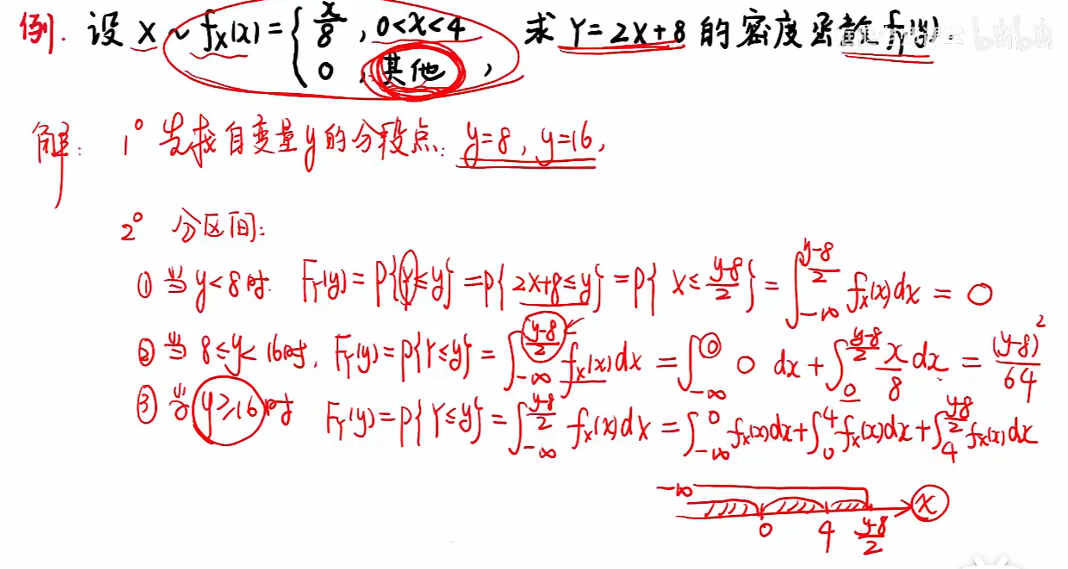 例. 设 X ~ f_X(x) = { x/8 , 0<x<4 ; 0 , 其他 , 求 Y=2X+8 的密度函数 f_Y(y).
bilibili
解: 1° 先找自变量y的分段点: y=8, y=16,
2° 分区间:
① 当 y<8 时. F_Y(y) = P{Y≤y} = P{2X+8≤y} = P{X≤(y-8)/2} = ∫_{-∞}^{(y-8)/2} f_X(x)dx = 0
② 当 8≤y<16时, F_Y(y) = P{Y≤y} = ∫_{-∞}^{(y-8)/2} f_X(x)dx = ∫_{-∞}^{0} 0 dx + ∫_{0}^{(y-8)/2} x/8 dx = (y-8)²/64
③ 当 y≥16 时 F_Y(y) = P{Y≤y} = ∫_{-∞}^{(y-8)/2} f_X(x)dx = ∫_{-∞}^{0} f_X(x)dx + ∫_{0}^{4} f_X(x)dx + ∫_{4}^{(y-8)/2} f_X(x)dx
-∞ x
0 4 (y-8)/2